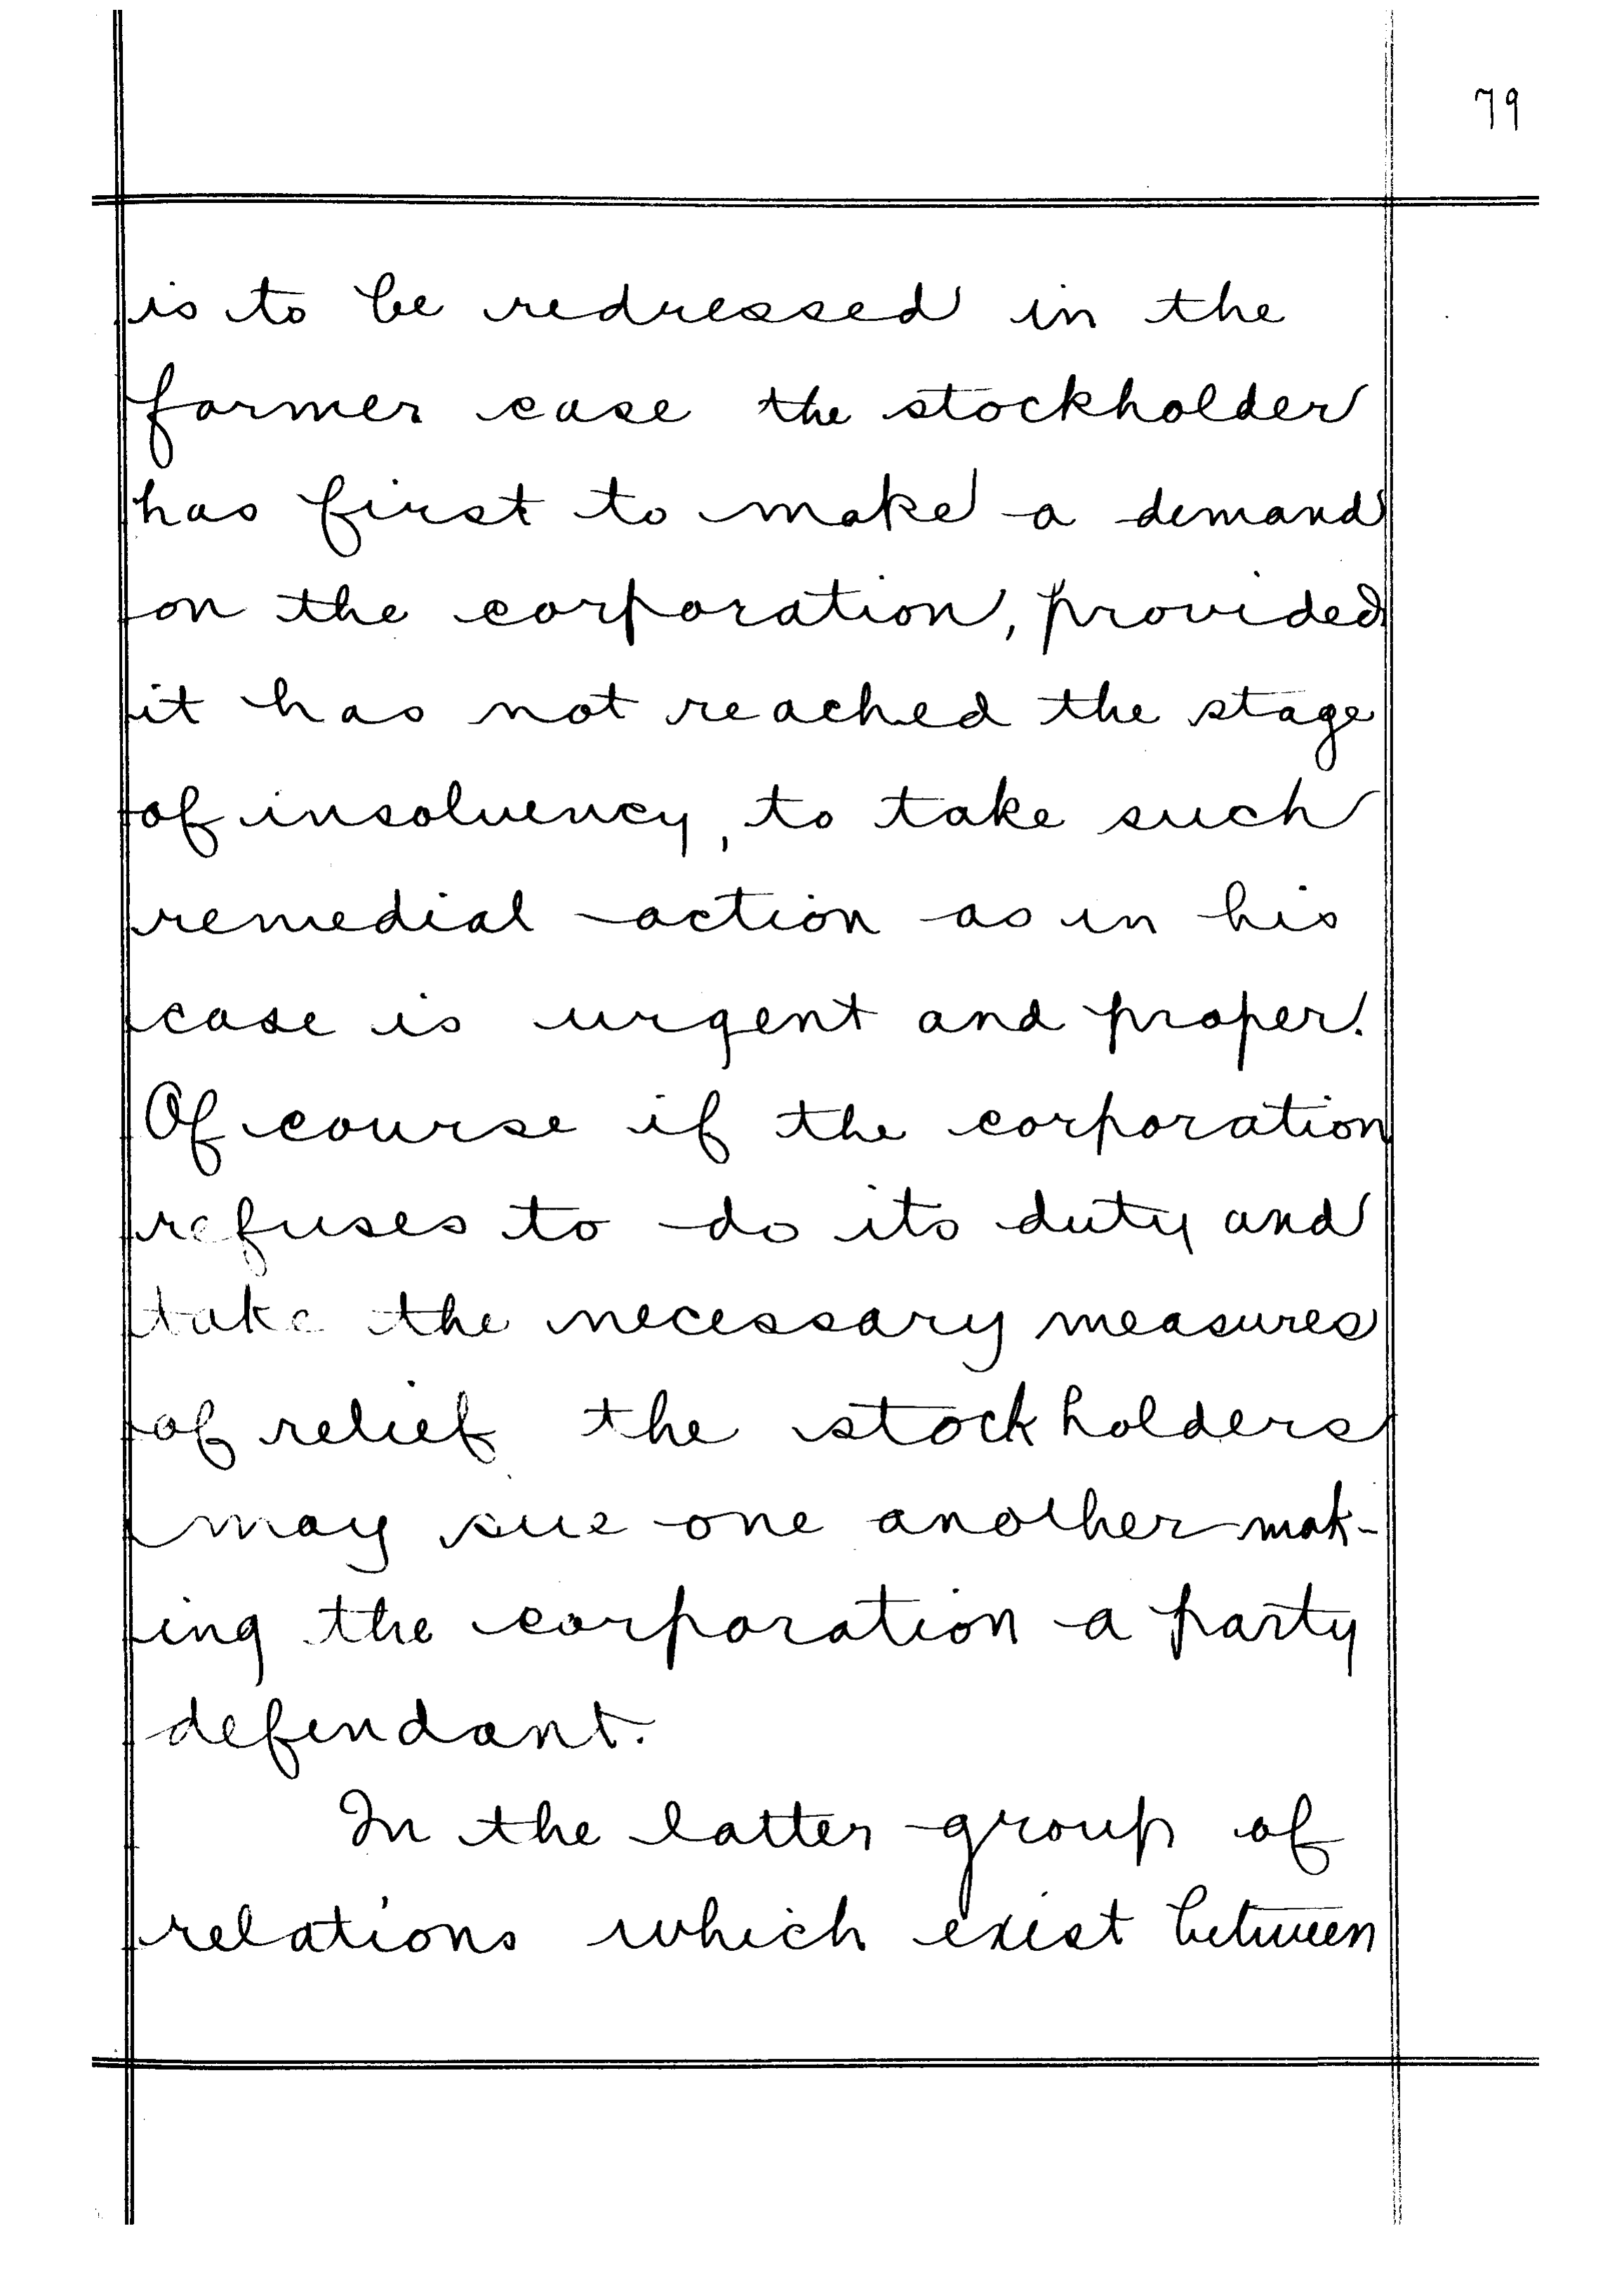 79
is to be redressed in the
former case the stockholder
has first to make a demand
on the corporation, provided
it has not reached the stage
of insolvency, to take such
remedial action as in his
case is urgent and proper.
Of course if the corporation
refuses to do its duty and
take the necessary measures
of relief the stockholders
may sue one another mak-
ing the corporation a party
defendant.
In the latter group of
relations which exist between